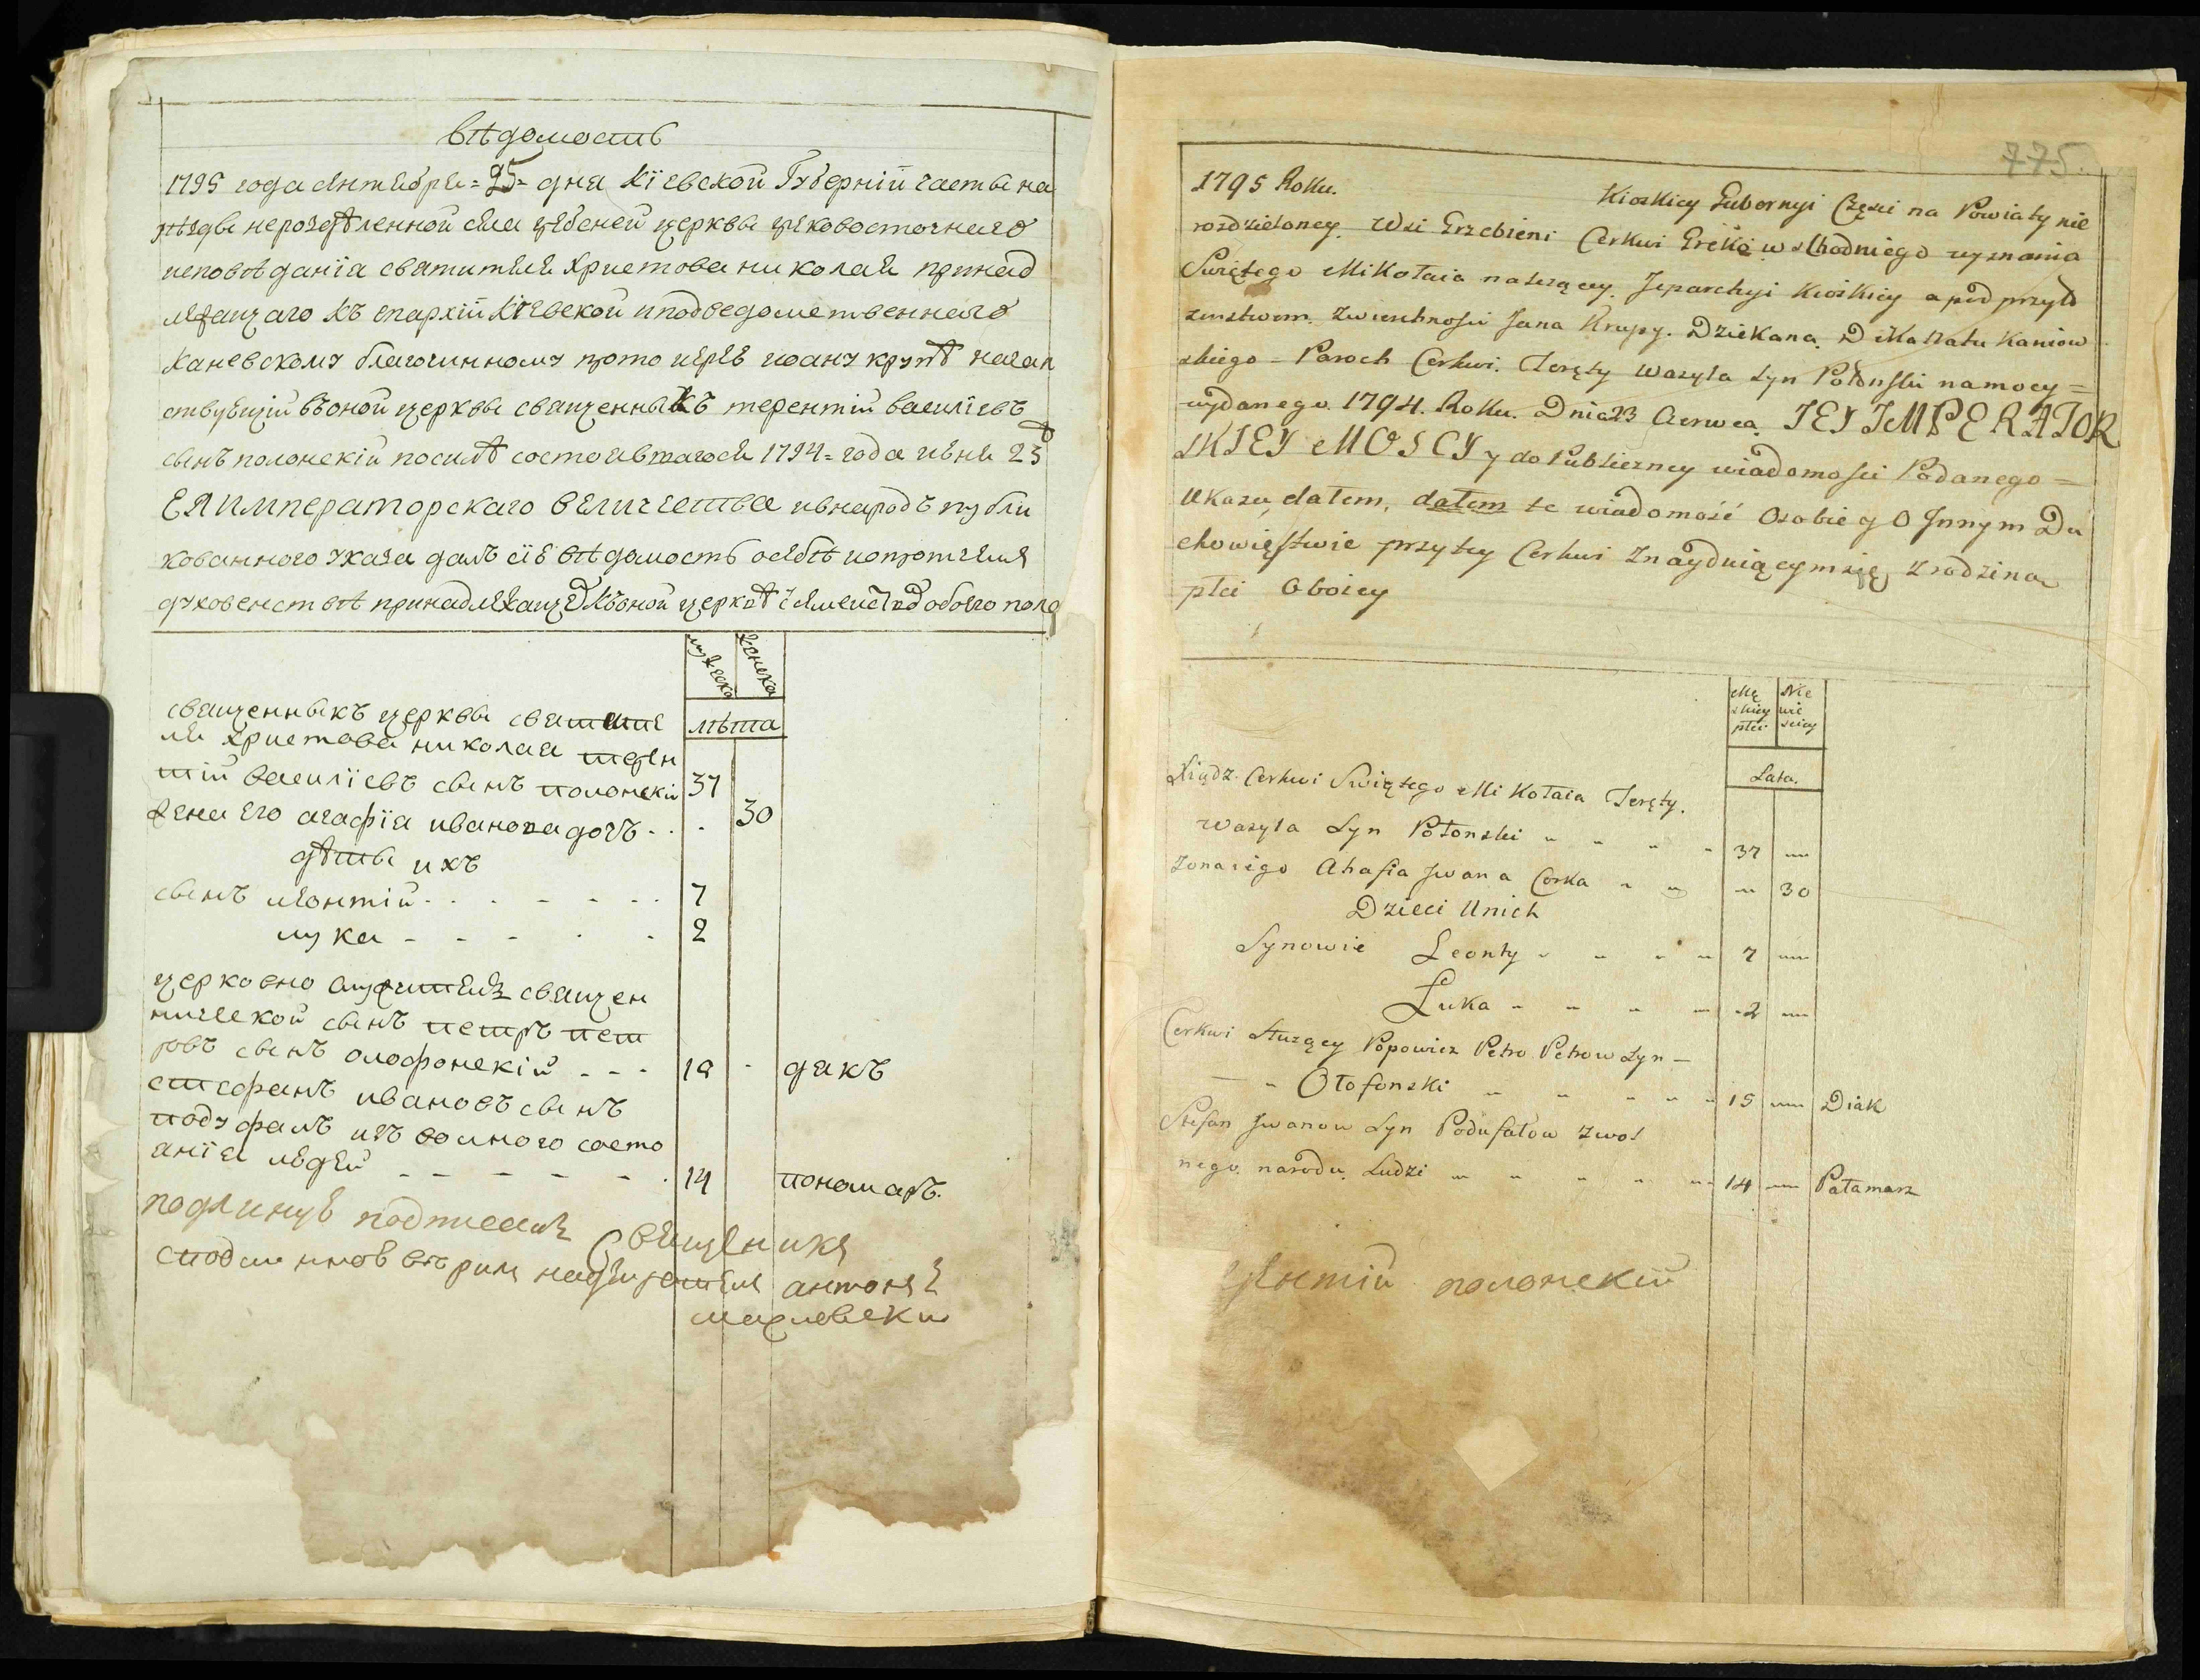 вѣдомость
1795 года октября = 25 = дня Кіевской Губерніи части на
уѣзды нероздѣленной села церквы грековосточнаго
исповѣданія святителя Христова николая принад
лежащаго къ епархіи Кіевской и подведомственнаго
Каневскому благочинному прото иерею иоану крупѣ началн
ствующій въоной церквы священныкъ терентій василіевъ
сынъ полонскій посилѣ состоявшагося 1794 = года июня 23
ЕЯ императорскаго величества ивнародъ публи
кованного указа далъ сіе вѣдомость осебѣ ипротчемъ
духовенствѣ принадлежащемъ къоной церквѣ с обоего пола
мужеска
женска
священныкъ церквы святите
ля христова николая терен
тій василіевъ сынъ полонскій 37
лѣта
жена его агафія иванова дочъ - . . 30
дѣты ихъ
сынъ леонтій - - - - - - 7
лука - - - - - 2
церковно служитель священ
нической сынъ петръ пет
ровъ сынъ олофонскій - - - 19 - дякъ
стефанъ ивановъ сынъ
подуфалъ изъ волного состо
янія людей - - - - - - 14 пономаръ.
подписалъ Священикъ
антоній
775.
1795 Roku. Kioskiey Gubernyi Częsci na Powiaty nie
rozdzieloney. Wsi Grzebieni Cerkwi Greko wschodniego wyznania
Swiętego Mikołaia nalezącey. Jeparchyi Kioskiey a pod przyło
zenstwem. Zwierchnosci Jana Krupy. Dziekana. Dekanatu Kaniow
skiego - Paroch Cerkwi. Teręty Wasyla Syn Połonski na mocy =
wydanego. 1794. Roku. Dnia 23 Czerwca. JEY JMPERATOR
SKIEY MOSCY y do Publiczney wiadomosci Podanego =
Ukazu, dałem, dałem tę wiadomość Osobie y O Jnnym Du
chowięstwie przy tey Cerkwi Znayduiącym się, z rodziną
płci Oboiey
Mę
skiey
płci
Nie
wie
sciey
Lata.
Xiądz. Cerkwi Swiętego Mikołaia Teręty.
Wasyla Syn Połonski „ „ „ „ 37 „
Zona iego Ahafia Jwana Corka „ „ „ 30
Dzieci Unich
Synowie Leonty „ „ „ „ 7 „
Łuka „ „ „ „ 2 „
Cerkwi Słuzący Popowicz Petro Petrow Syn -
- „ Ołofonski „ „ „ „ „ 15 „ Diak
Stefan Jwanow Syn Podufałow Zwol
nego. narodu. Ludzi „ „ „ „ „ 14 „ Pałamarz
полонскій